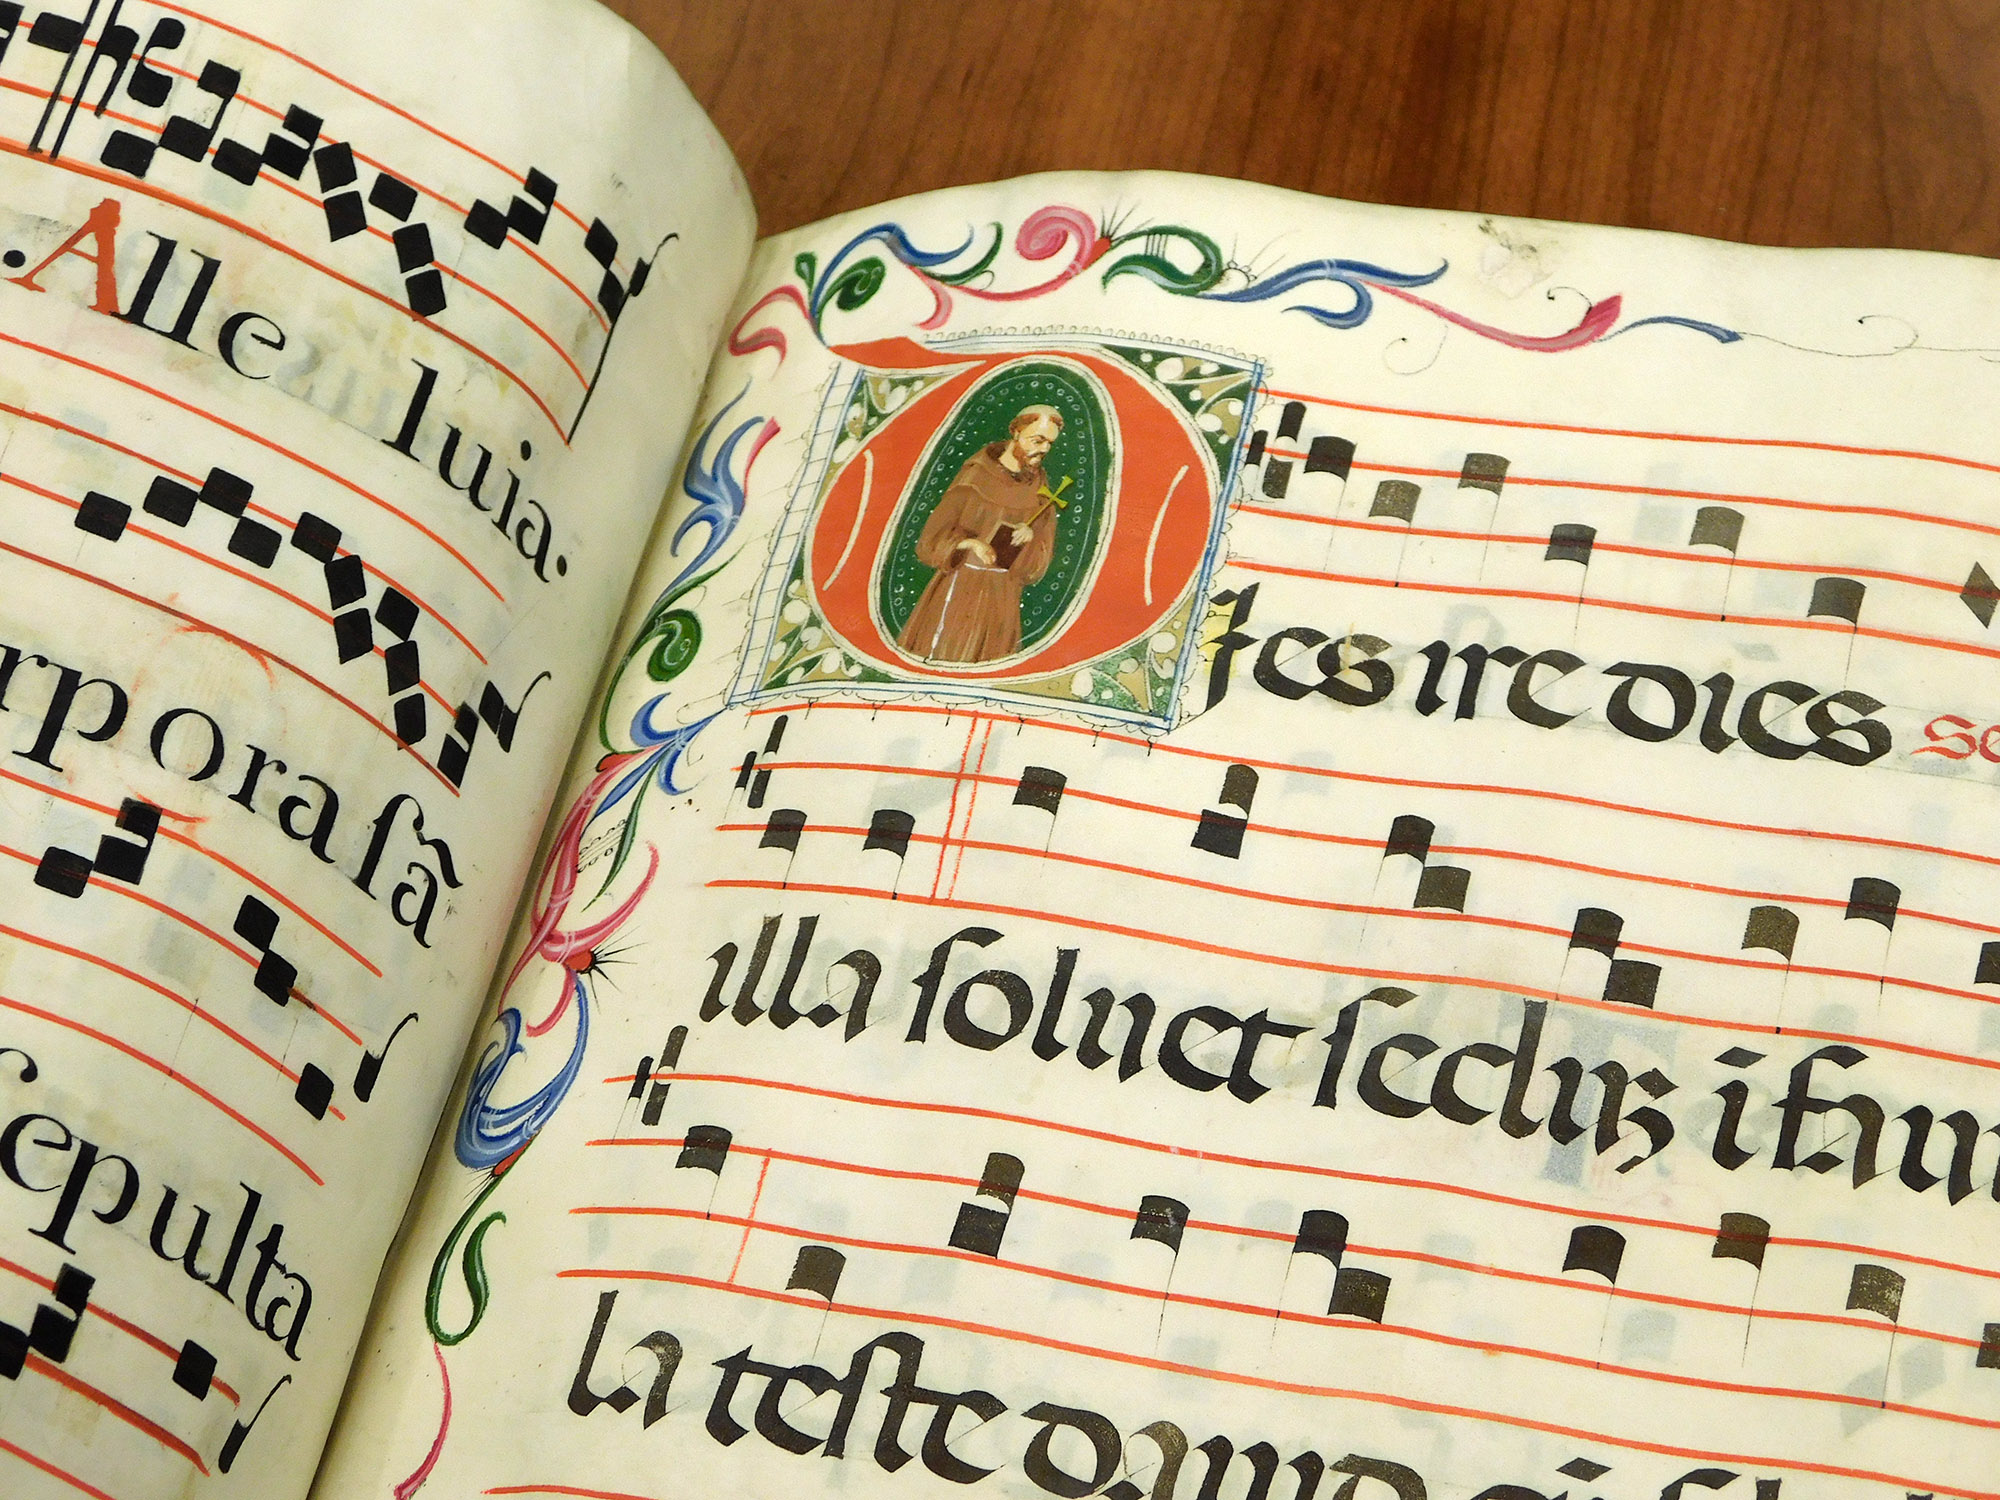 . Alle luia.
rpora ſã
ſepulta
DIes ire dies se
illa ſoluet ſecluꝫ i faui
la teſte dauid